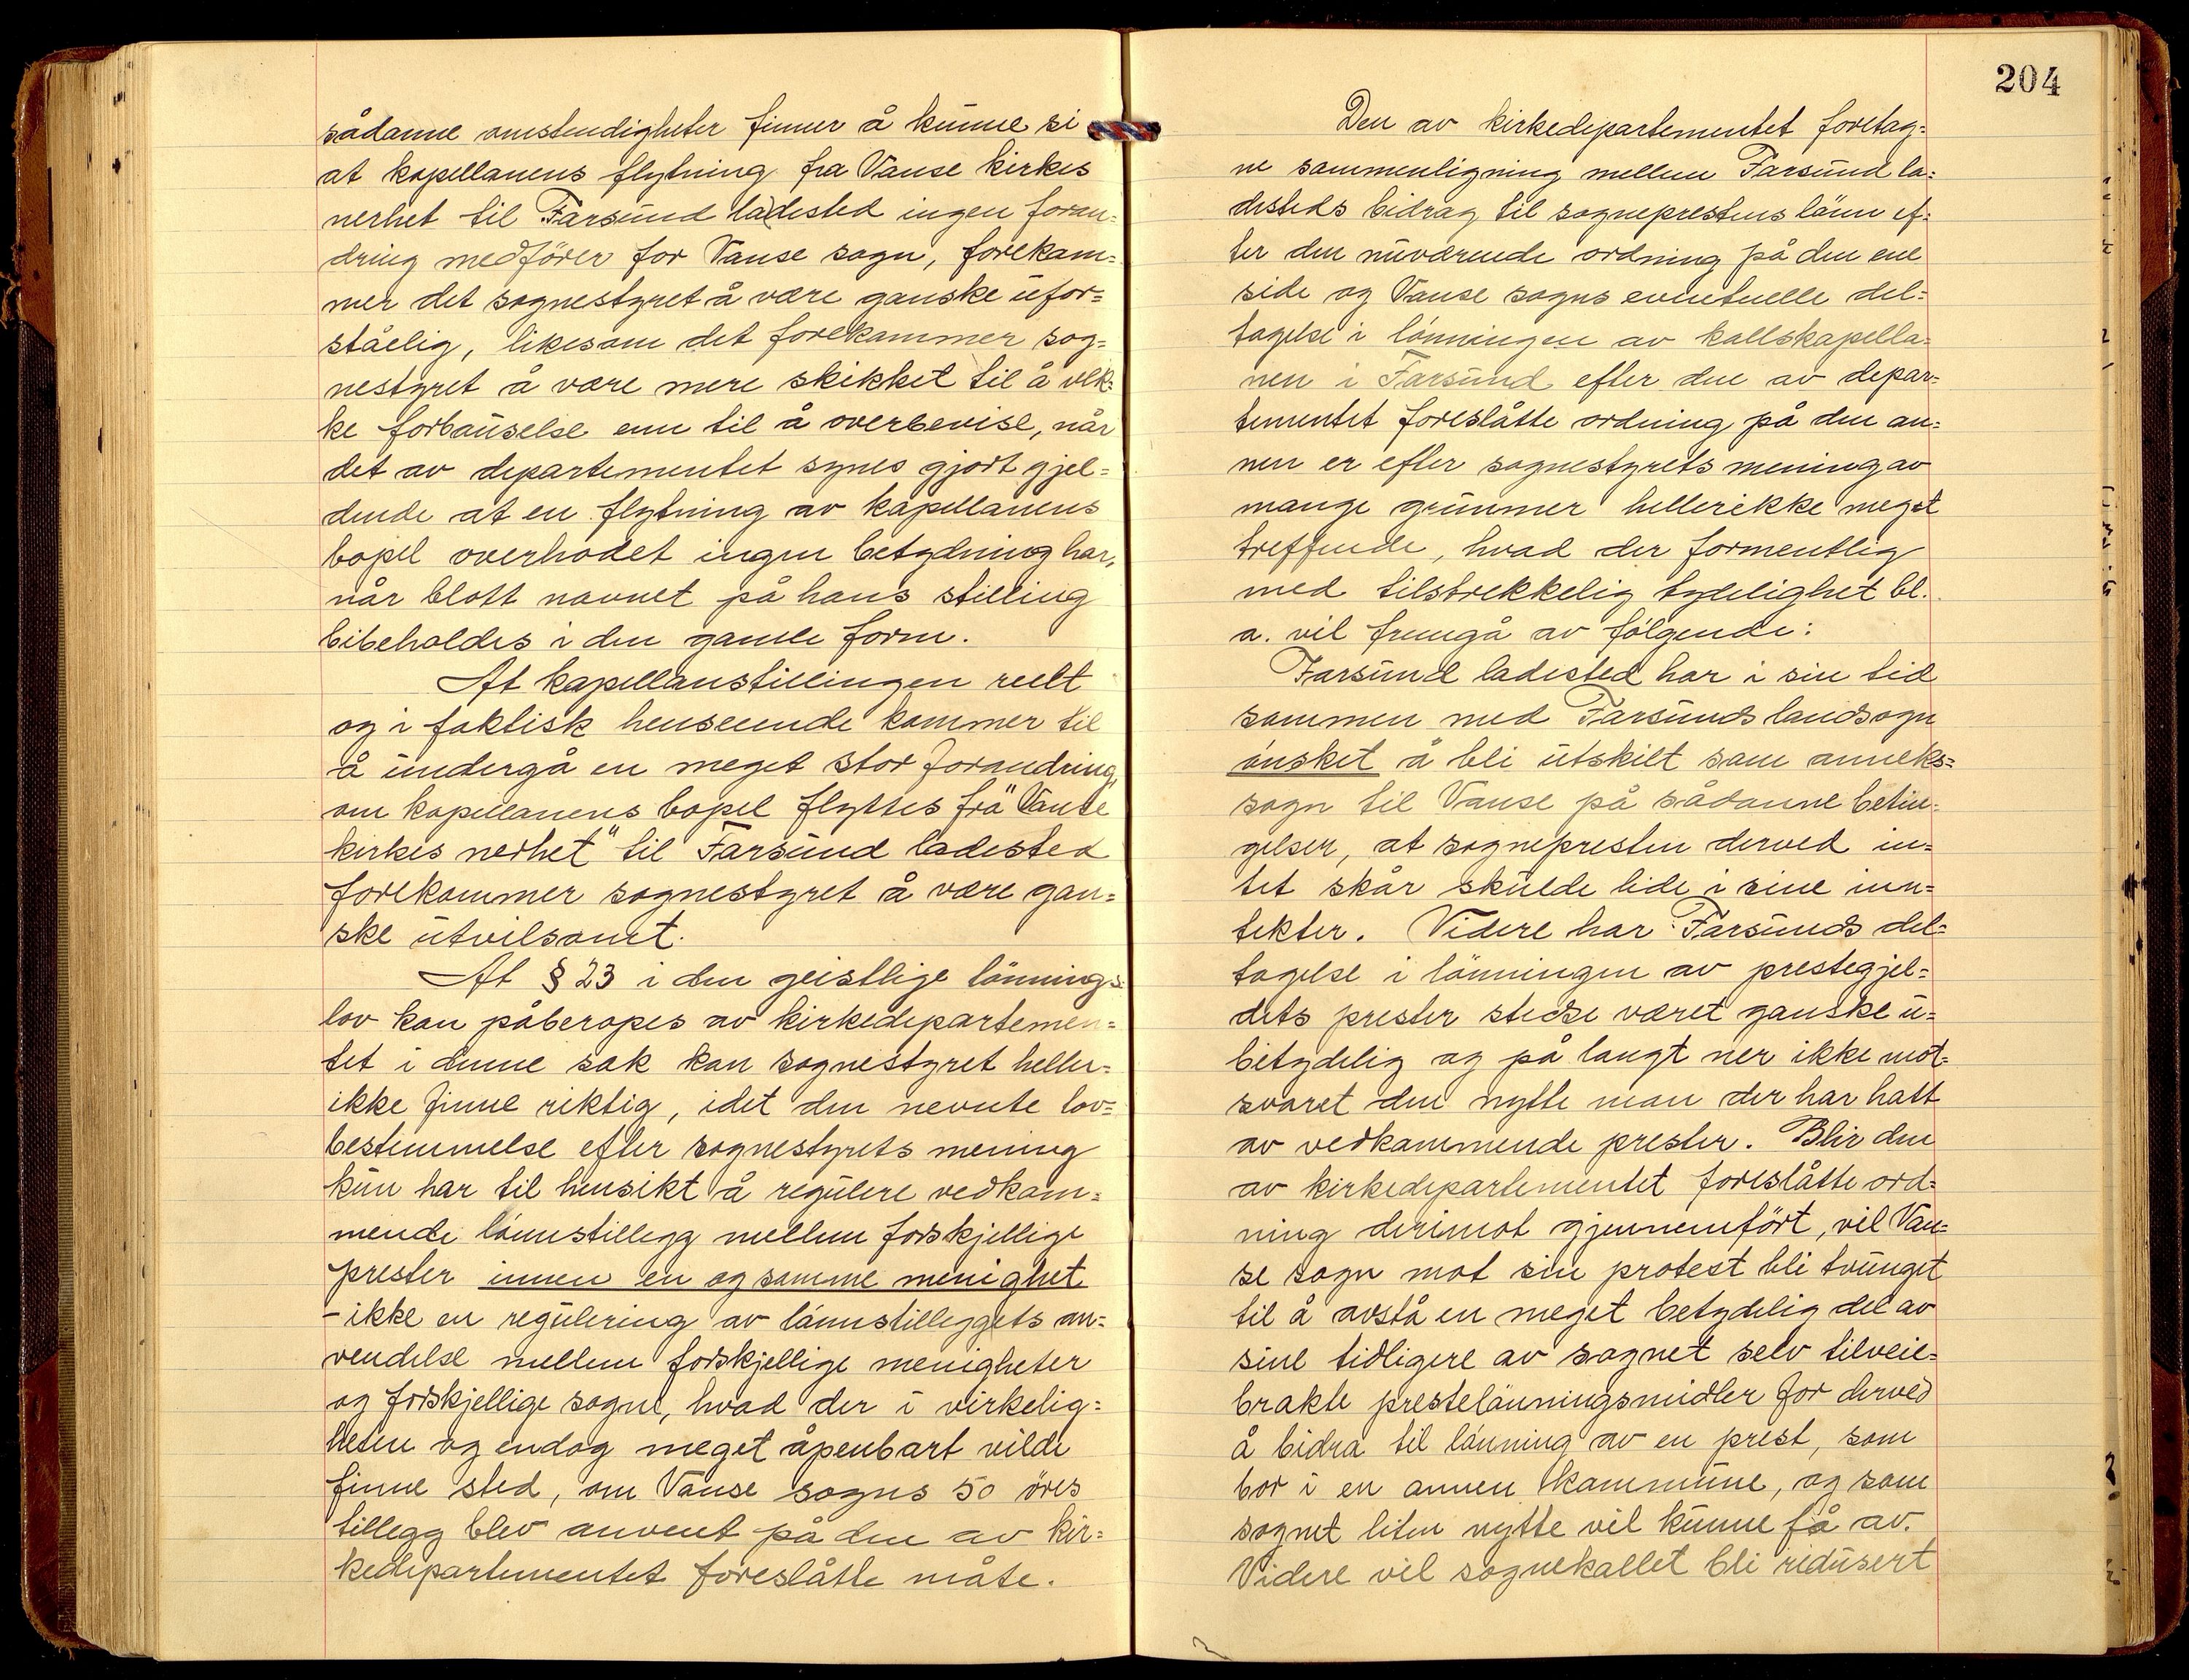 sådanne omstendigheter finner å kunne si
at kapellanens flytning fra Vanse kirkes
nerhet til Farsund ladested ingen foran=
dring medfører for Vanse sogn, forekom=
mer det sognestyret å være ganske ufor=
ståelig, likesom det forekommer sog=
nestyret å være mere skikket til å vek=
ke forbauselse enn til å overbevise, når
det av departementet synes gjort gjel=
dende at en flytning av kapellanens
bopel overhodet ingen betydning har,
når blott navnet på hans stilling
bibeholdes i den gamle form.
At kapellanstillingen reelt
og i faktisk henseende kommer til
å undergå en meget stor forandring,
om kapellanens bopel flyttes fra "Vanse
kirkes nerhet" til Farsund ladested
forekommer sognestyret å være gan=
ske utvilsomt.
At § 23 i den geistlige lønnings=
lov kan påberopes av kirkedepartemen=
tet i denne sak kan sognestyret heller=
ikke finne riktig, idet den nevnte lov=
bestemmelse efter sognestyrets mening
kun har til hensikt å regulere vedkom=
mende lønnstillegg mellem forskjellige
prester innen en og samme menighet
- ikke en regulering av lønnstilleggets an=
vendelse mellem forskjellige menigheter
og forskjellige sogne, hvad der i virkelig=
heten og endog meget åpenbart vilde
finne sted, om Vanse sogns 50 øres
tillegg blev anvent på den av kir=
kedepartementet foreslåtte måte.
204
Den av kirkedepartementet foretag=
ne sammenligning mellem Farsund la=
desteds bidrag til sogneprestens lønn ef=
ter den nuværende ordning på den ene
side og Vanse sogns eventuelle del=
tagelse i lønningen av kallskapella=
nen i Farsund efter den av depar=
tementet foreslåtte ordning på den an=
nen er efter sognestyrets mening av
mange grunner hellerikke meget
treffende, hvad der formentlig
med tilstrekkelig tydelighet bl.
a. vil fremgå av følgende:
Farsund ladested har i sin tid
sammen med Farsunds landsogn
ønsket å bli utskilt som anneks=
sogn til Vanse på sådanne betin=
gelser, at sognepresten derved in=
tet skår skulde lide i sine inn=
tekter. Videre har Farsunds del=
tagelse i lønningen av prestegjel=
dets prester stedse været ganske u=
betydelig og på langt ner ikke mot=
svaret den nytte man der har hatt
av vedkommende prester. Blir den
av kirkedepartementet foreslåtte ord=
ning derimot gjennemført, vil Van=
se sogn mot sin protest bli tvunget
til å avstå en meget betydelig del av
sine tidligere av sognet selv tilveie=
brakte prestelønningsmidler for derved
å bidra til lønning av en prest, som
bor i en annen kommune, og som
sognet liten nytte vil kunne få av.
Videre vil sognekallet bli redusert